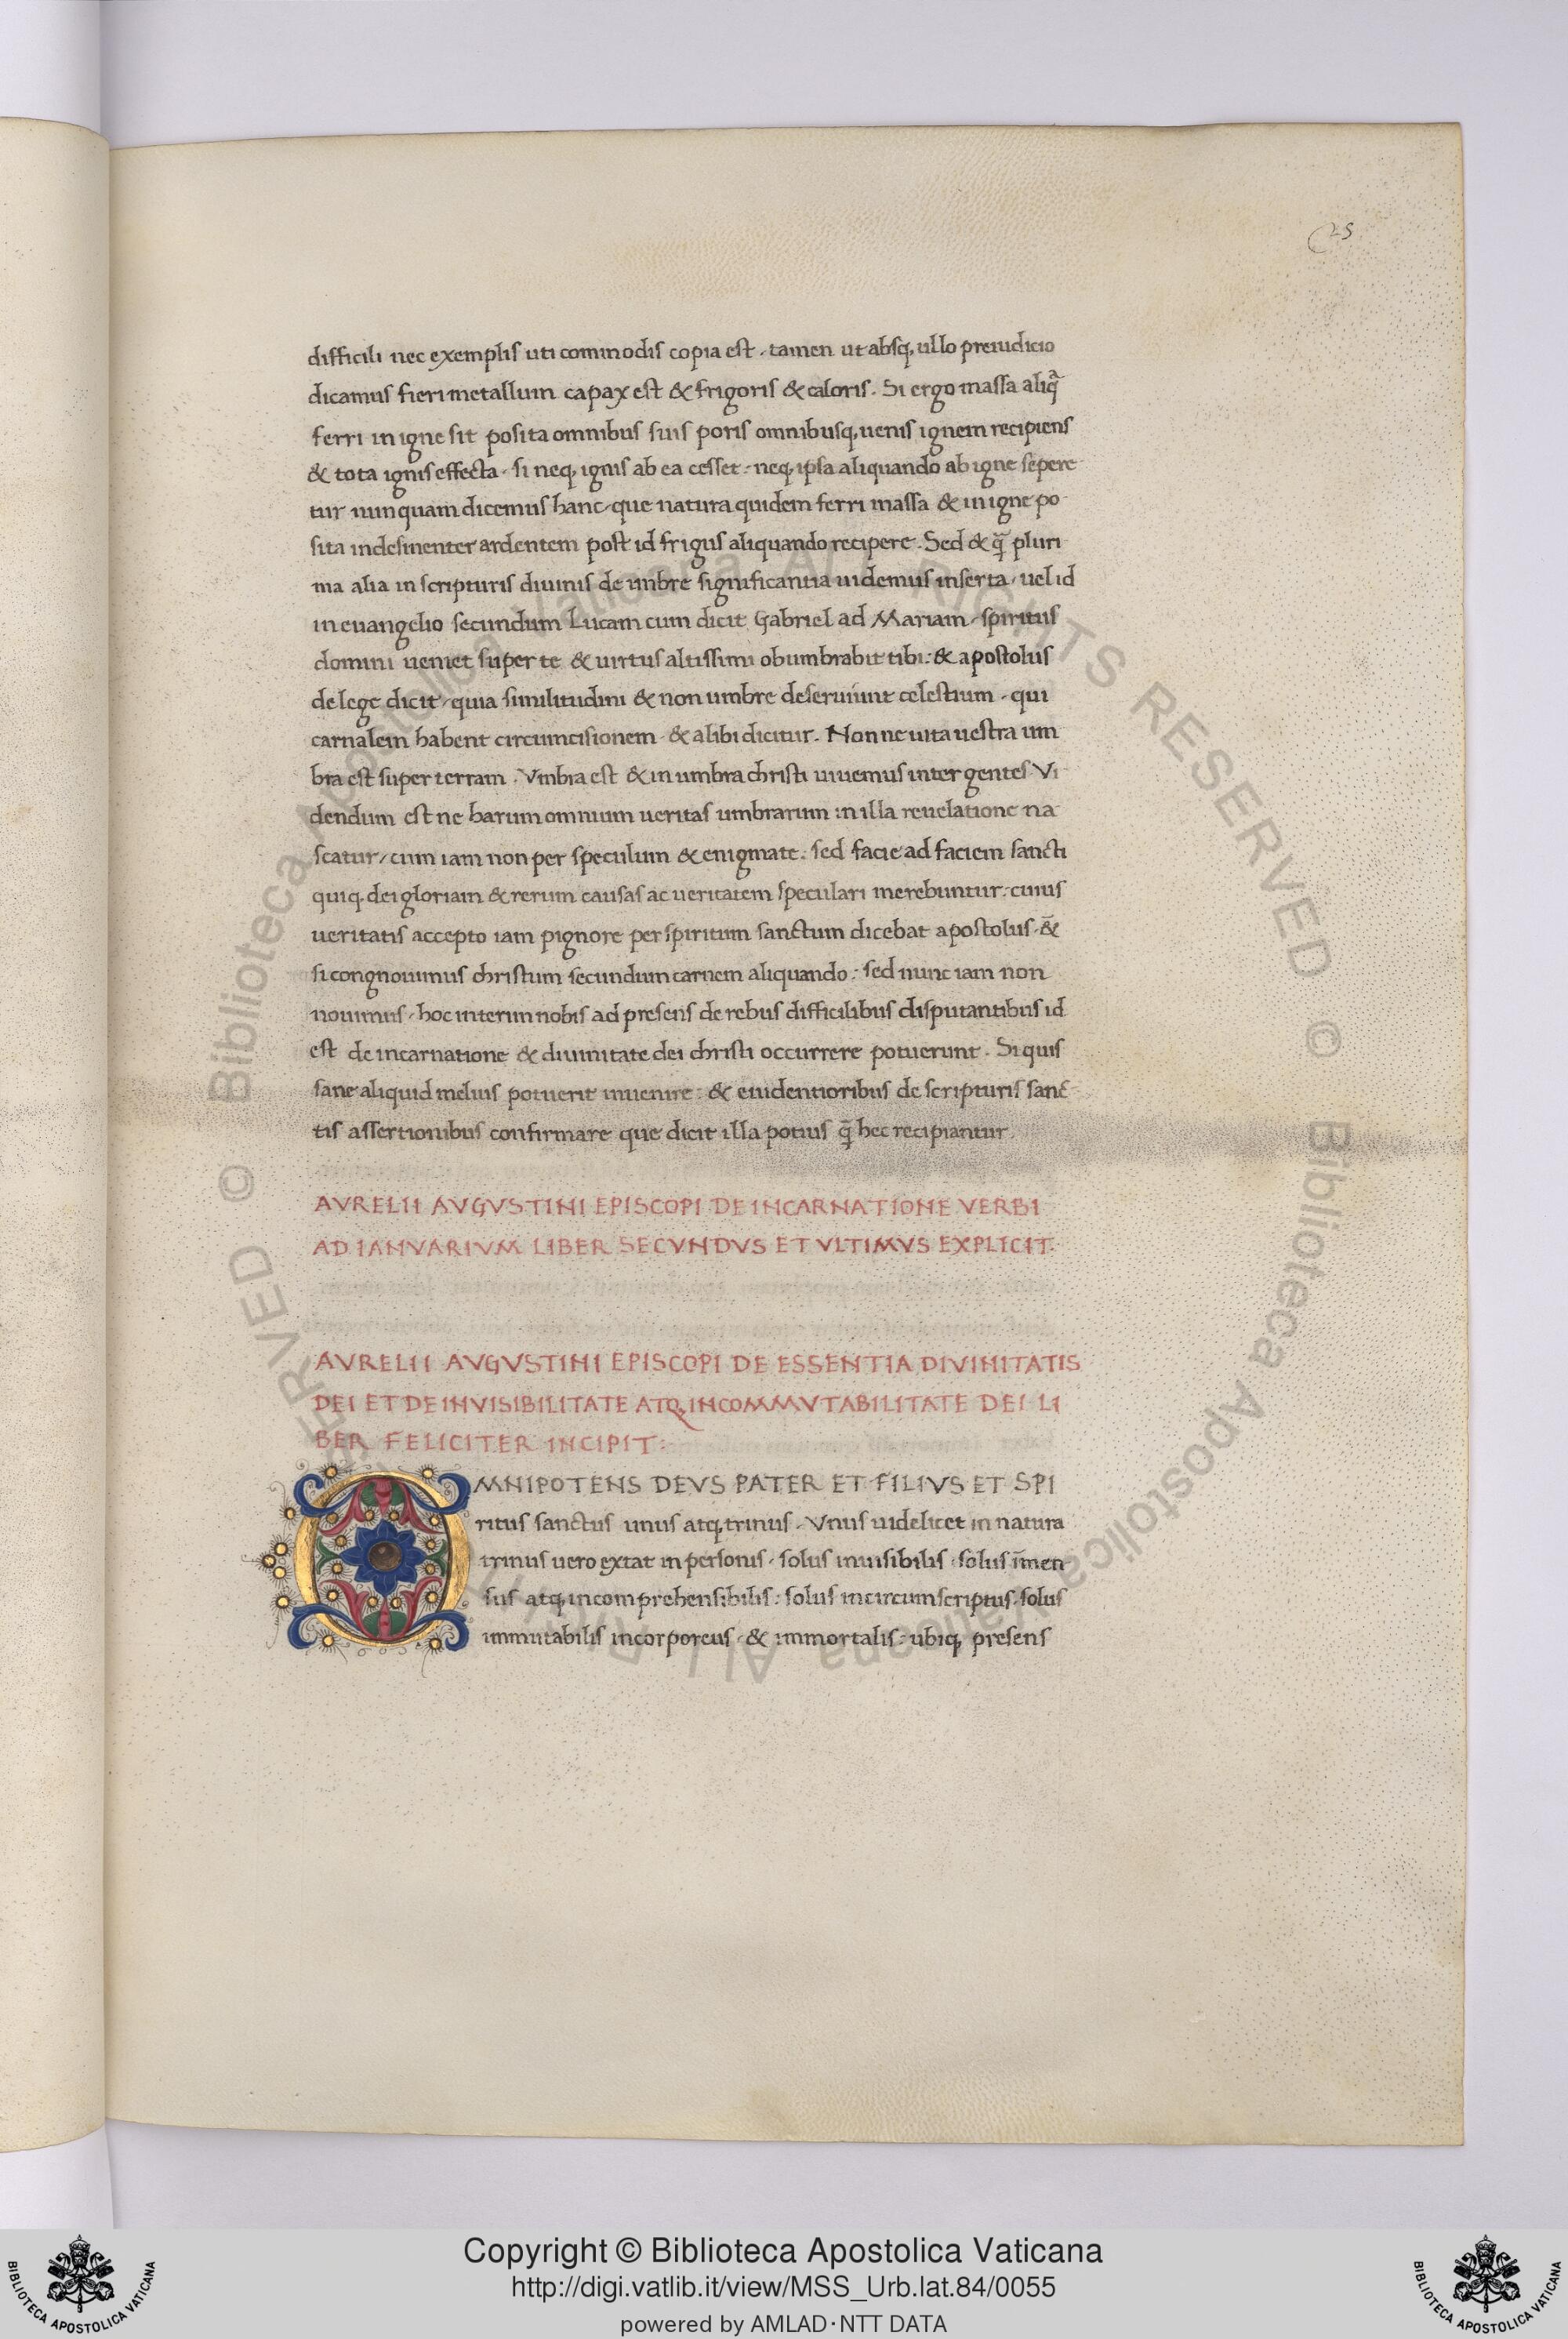 25
difficili nec exemplis uti commodis copia est. tamen ut absq. ullo preiudicio
dicamus fieri metallum capax est & frigoris & caloris. Si ergo massa aliq̃
ferri in igne sit posita omnibus suis poris omnibusq. uenis ignem recipiens
& tota ignis effecta. si neq. ignis ab ea cesset. neq. ipsa aliquando ab igne sepere
tur nunquam dicemus hanc que natura quidem ferri massa & in igne po
sita indesinenter ardentem post id frigus aliquando recipere. Sed & q̃ pluri
ma alia in scripturis diuinis de umbre significantia uidemus inserta / uel id
in euangelio secundum Lucam cum dicit Gabriel ad Mariam. spiritus
domini ueniet super te & uirtus altissimi obumbrabit tibi: & apostolus
de lege dicit / quia similitudini & non umbre deseruiunt celestium. qui
carnalem habent circumcisionem. & alibi dicitur. Nonne uita uestra um
bra est super terram. Vmbra est & in umbra christi uiuemus inter gentes Vi
dendum est ne harum omnium ueritas umbrarum in illa reuelatione na
scatur / cum iam non per speculum & enigmate. sed facie ad faciem sancti
quiq. dei gloriam & rerum causas ac ueritatem speculari merebuntur: cuius
ueritatis accepto iam pignore per spiritum sanctum dicebat apostolus. &̃
si congnouimus christum secundum carnem aliquando: sed nunc iam non
nouimus. hoc interim nobis ad presens de rebus difficilibus disputantibus id
est de incarnatione & diuinitate dei christi occurrere potuerunt. Si quis
sane aliquid melius potuerit inuenire: & euidentioribus de scripturis sanc
tis assertionibus confirmare que dicit illa potius q̃ hec recipiantur.
AVRELII AVGVSTINI EPISCOPI DE INCARNATIONE VERBI
AD IANVARIVM LIBER SECVNDVS ET VLTIMVS EXPLICIT.
AVRELII AVGVSTINI EPISCOPI DE ESSENTIA DIVINITATIS
DEI ET DE INVISIBILITATE ATQ. INCOMMVTABILITATE DEI LI
BER FELICITER INCIPIT:
OMNIPOTENS DEVS PATER ET FILIVS ET SPI
ritus sanctus unus atq. trinus. Vnus uidelicet in natura
trinus uero extat in personis. solus inuisibilis. solus im̃en
sus atq. incomprehensibilis: solus incircumscriptus. solus
immutabilis incorporeus. & immortalis: ubiq. presens
Copyright © Biblioteca Apostolica Vaticana
http://digi.vatlib.it/view/MSS_Urb.lat.84/0055
powered by AMLAD·NTT DATA
BIBLIOTECA APOSTOLICA VATICANA
BIBLIOTECA APOSTOLICA VATICANA
© Biblioteca Apostolica Vaticana ALL RIGHTS RESERVED
© Biblioteca Apostolica Vaticana ALL RIGHTS RESERVED